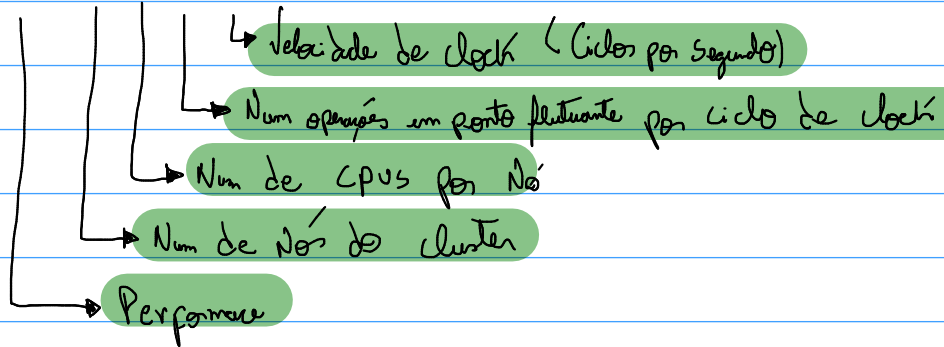 Velocidade de clock (Ciclos por segundo)
Num operações em ponto flutuante por ciclo de clock
Num de CPUs por Nó
Num de Nós do cluster
Performace